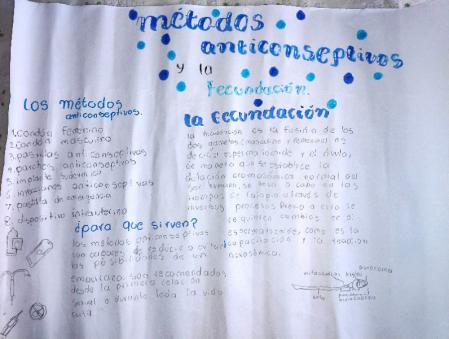 métodos
anticonseptivos
y la
fecundación.
Los métodos
anticonseptivos.
1. condón femenino
2. condón masculino
3. pastillas anticonseptivas
4. parches anticonseptivos
5. implante subdérmico
6. inyecciones anticonseptivas
7. pastilla de emergencia
8. dispositivo intrauterino
¿para que sirven?
los métodos anticonseptivos
son capaces de reducir o evitar
las posibilidades de un
embarazo. son recomendados
desde la primera relación
sexual o durante toda la vida
la fecundación
la fecundación es la fusión de los
dos gametos (masculino y femenino) es
decir el espermatozoide y el óvulo,
de manera que se establece la
dotación cromosómica normal del
ser humano, se lleva a cabo en las
trompas de falopio a través de
diversos procesos previo a esto se
requieren cambios en el
espermatozoide, como es la
capacitación y la reacción